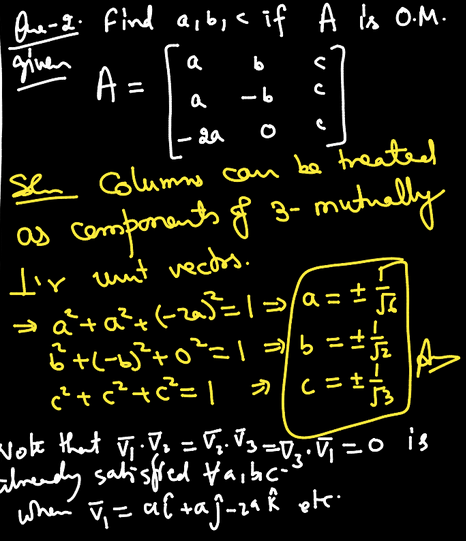 Que-2. Find a, b, c if A is O.M.
given
A = [ a b c
a -b c
-2a 0 c ]
Soln Columns can be treated
as components of 3-mutually
⊥'r unit vectors.
⇒ a² + a² + (-2a)² = 1 ⇒ a = ± 1/√6
b² + (-b)² + 0² = 1 ⇒ b = ± 1/√2
c² + c² + c² = 1 ⇒ c = ± 1/√3
Note that V̄₁·V̄₂ = V̄₂·V̄₃ = V̄₃·V̄₁ = 0 is
already satisfied ∀ a, b, c
when V̄₁ = aî + aĵ - 2a k̂ etc.